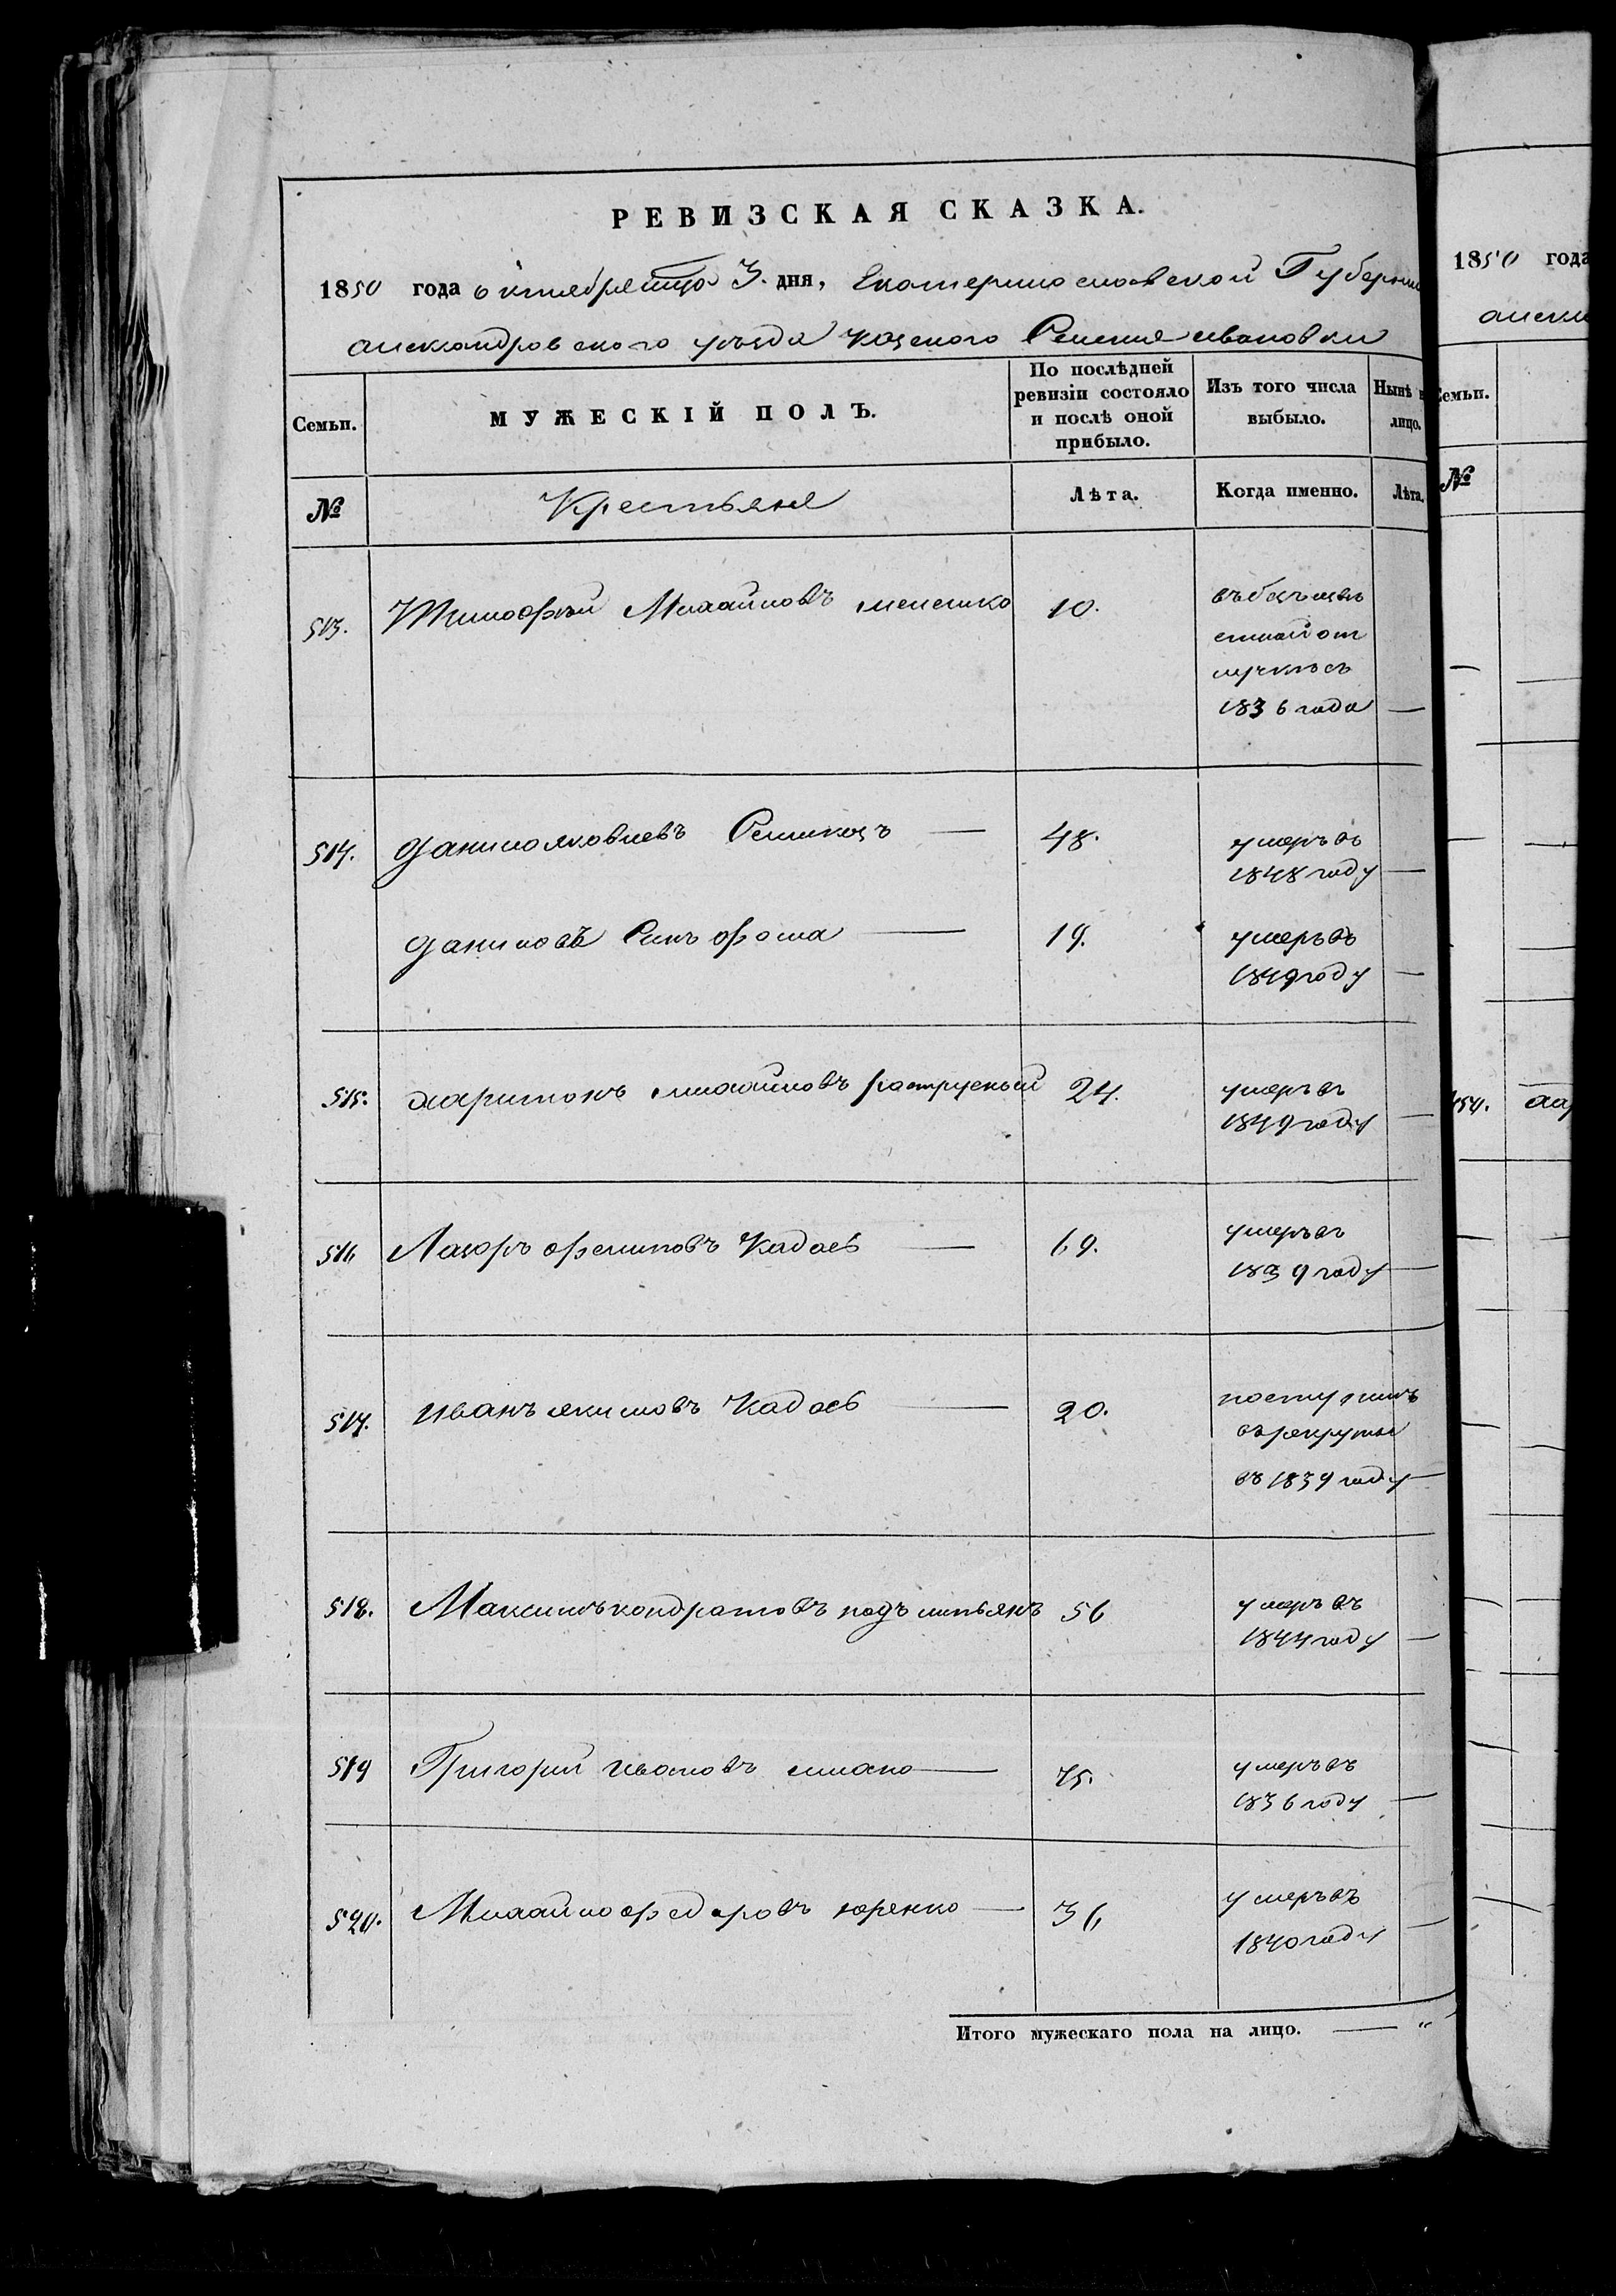 РЕВИЗСКАЯ СКАЗКА.
1850 года октября мца 3. дня, Екатеринославской Губернии
александровского уезда казеного Селения ивановки
Семьи.
МУЖЕСКІЙ ПОЛЪ.
По послѣдней ревизіи состояло и послѣ оной прибыло.
Изъ того числа выбыло.
Нынѣ
лицо.
№
Крестьяня
Лѣта.
Когда именно.
Лѣта.
513. Тимофѣй Михайловъ 10.
отлучкѣ съ
1836 года —
514. данило яковлевъ — 48. умеръ въ
1848 году —
даниловъ Синъ фома — 19. умеръ въ
1849 году —
515. харитонъ михайловъ 24. умеръ въ
1849 году —
516 Лазоръ филиповъ Кадаев — 69. умеръ въ
1839 году —
517. иванъ якимовъ Кадаев — 20. поступилъ
въ рекруты
въ 1839 году —
518. Максимъ кондратовъ 56 умеръ въ
1844 году —
519 Григорий ивановъ — 75. умеръ въ
1836 году —
520. Михайло федоровъ юренко — 36 умеръ въ
1840 году —
Итого мужескаго пола на лицо. — "
1850 года
Семьи.
№